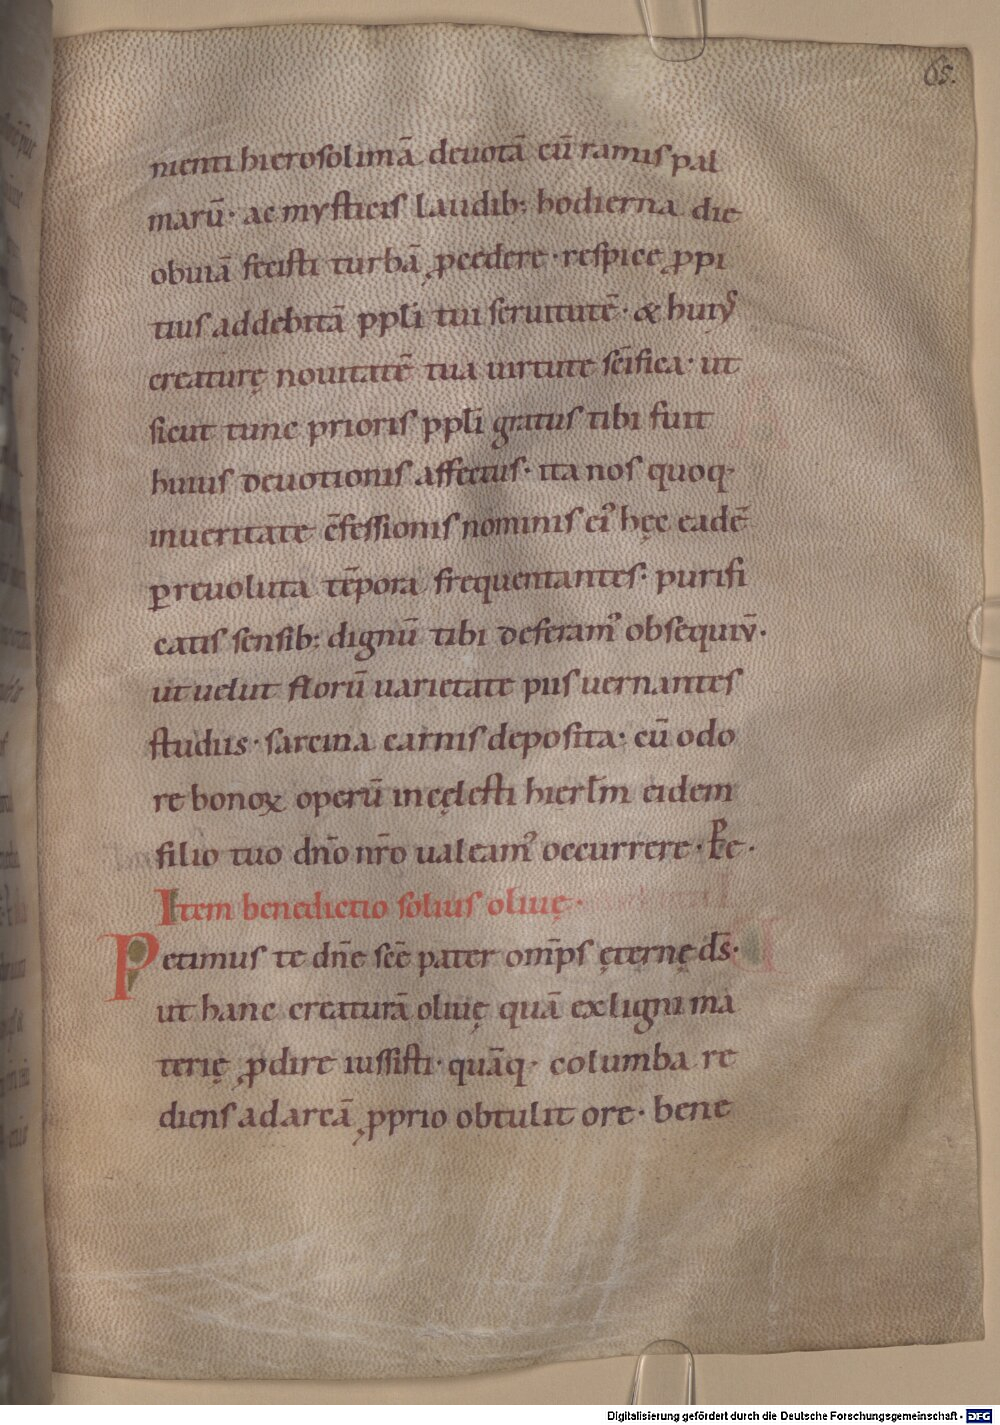 65.
nienti hierosolimā deuotā cū ramis pal
marū· ac mysticis laudib; hodierna die
obuiā fecisti turbā ꝓcedere· respice ꝓpi
tius ad debitā ppli tui seruitutē· & huiꝰ
creaturę nouitatē tua uirtute sc̄ifica· ut
sicut tunc prioris ppli gratus tibi fuit
huius deuotionis affectus· ita nos quoq;
in ueritate c̄fessionis nominis ei᾿ hęc eadē
ꝑ reuoluta tēpora frequentantes· purifi
catis sensib; dignū tibi deferam᾿ obsequiū·
ut uelut florū uarietate piis uernantes
studiis· sarcina carnis deposita· cū odo
re bonoꝝ operū in cęlesti hierl̄m eidem
filio tuo dn̄o nr̄o ualeam᾿ occurrere· P̲e·
Item benedictio solius oliuę·
Petimus te dn̄e sc̄e pater om̄ps ęternę ds̄·
ut hanc creaturā oliuę quā ex ligni ma
terię ꝓdire iussisti· quāq; columba re
diens ad arcā ꝓprio obtulit ore· bene
Digitalisierung gefördert durch die Deutsche Forschungsgemeinschaft - DFG